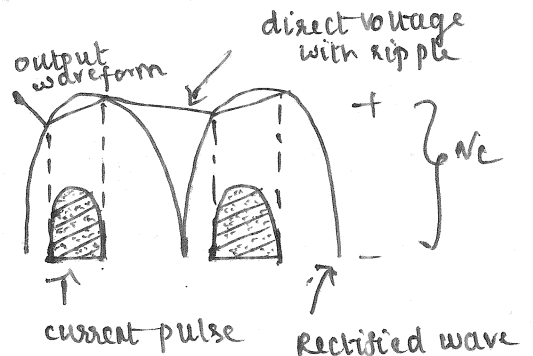 direct voltage
with ripple
output
waveform
+
Nc
-
current pulse
Rectified wave